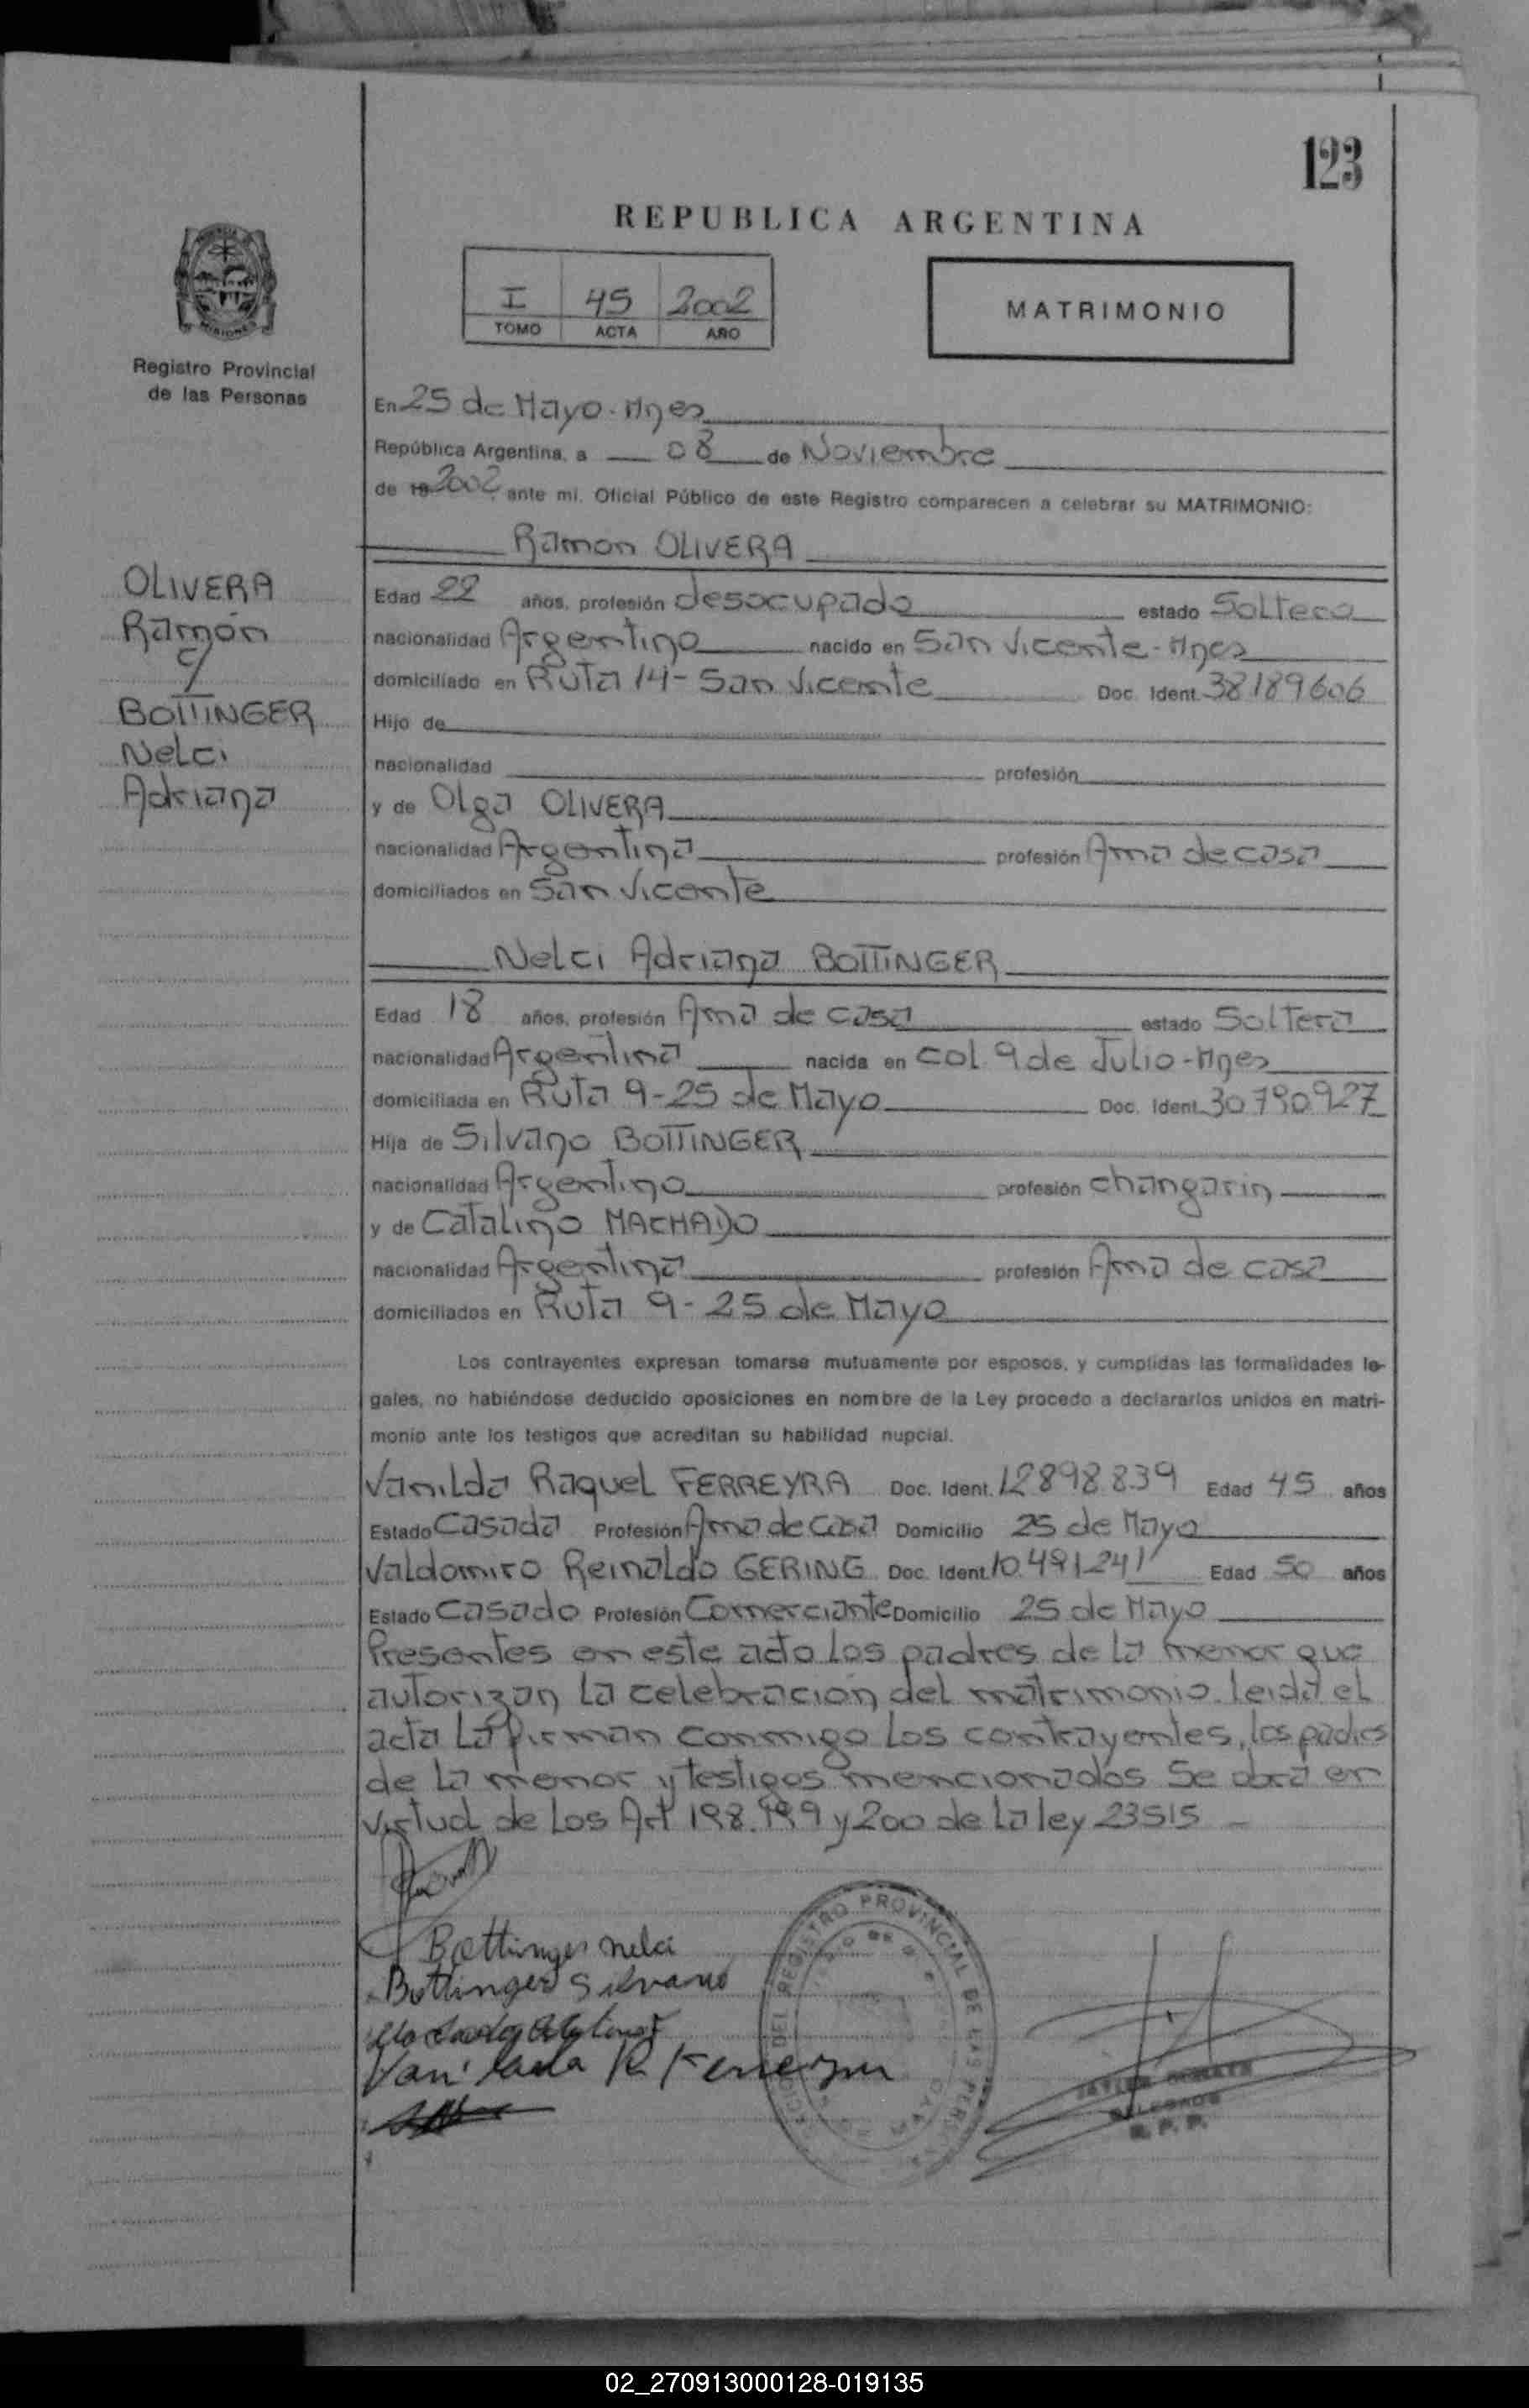 123
REPUBLICA ARGENTINA
I 45 2002
TOMO ACTA AÑO
MATRIMONIO
MISIONES
Registro Provincial
de las Personas
En 25 de Mayo - Mnes
República Argentina, a 08 de Noviembre
de 19 2002 ante mi, Oficial Público de este Registro comparecen a celebrar su MATRIMONIO:
Ramon OLIVERA
OLIVERA
Ramón
c/
BOTTINGER
Nelci
Adriana
Edad 22 años, profesión desocupado estado Soltero
nacionalidad Argentino nacido en San Vicente - Mnes
domiciliado en Ruta 14 - San Vicente Doc. Ident. 38189606
Hijo de
nacionalidad profesión
y de Olga OLIVERA
nacionalidad Argentina profesión Ama de casa
domiciliados en San Vicente
Nelci Adriana BOTTINGER
Edad 18 años, profesión Ama de casa estado Soltera
nacionalidad Argentina nacida en Col. 9 de Julio - Mnes
domiciliada en Ruta 9 - 25 de Mayo Doc. Ident. 30790927
Hija de Silvano BOTTINGER
nacionalidad Argentino profesión changarin
y de Catalino MACHADO
nacionalidad Argentina profesión Ama de casa
domiciliados en Ruta 9 - 25 de Mayo
Los contrayentes expresan tomarse mutuamente por esposos, y cumplidas las formalidades le-
gales, no habiéndose deducido oposiciones en nombre de la Ley procedo a declararlos unidos en matri-
monio ante los testigos que acreditan su habilidad nupcial.
Vanilda Raquel FERREYRA Doc. Ident. 12898839 Edad 45 años
Estado Casada Profesión Ama de Casa Domicilio 25 de Mayo
Valdomiro Reinaldo GERING Doc. Ident. 10.491.241 Edad 50 años
Estado Casado Profesión Comerciante Domicilio 25 de Mayo
Presentes en este acto los padres de la menor que
autorizan la celebración del matrimonio. Leida el
acta la firman conmigo los contrayentes, los padres
de la menor y testigos mencionados Se obra en
virtud de los Art 198.199 y 200 de la ley 23515
Bottinger nelci
Bottinger Silvano
Vanilda R Ferreyra
REGISTRO PROVINCIAL DE LAS PERSONAS
R. P. P.
02_270913000128-019135